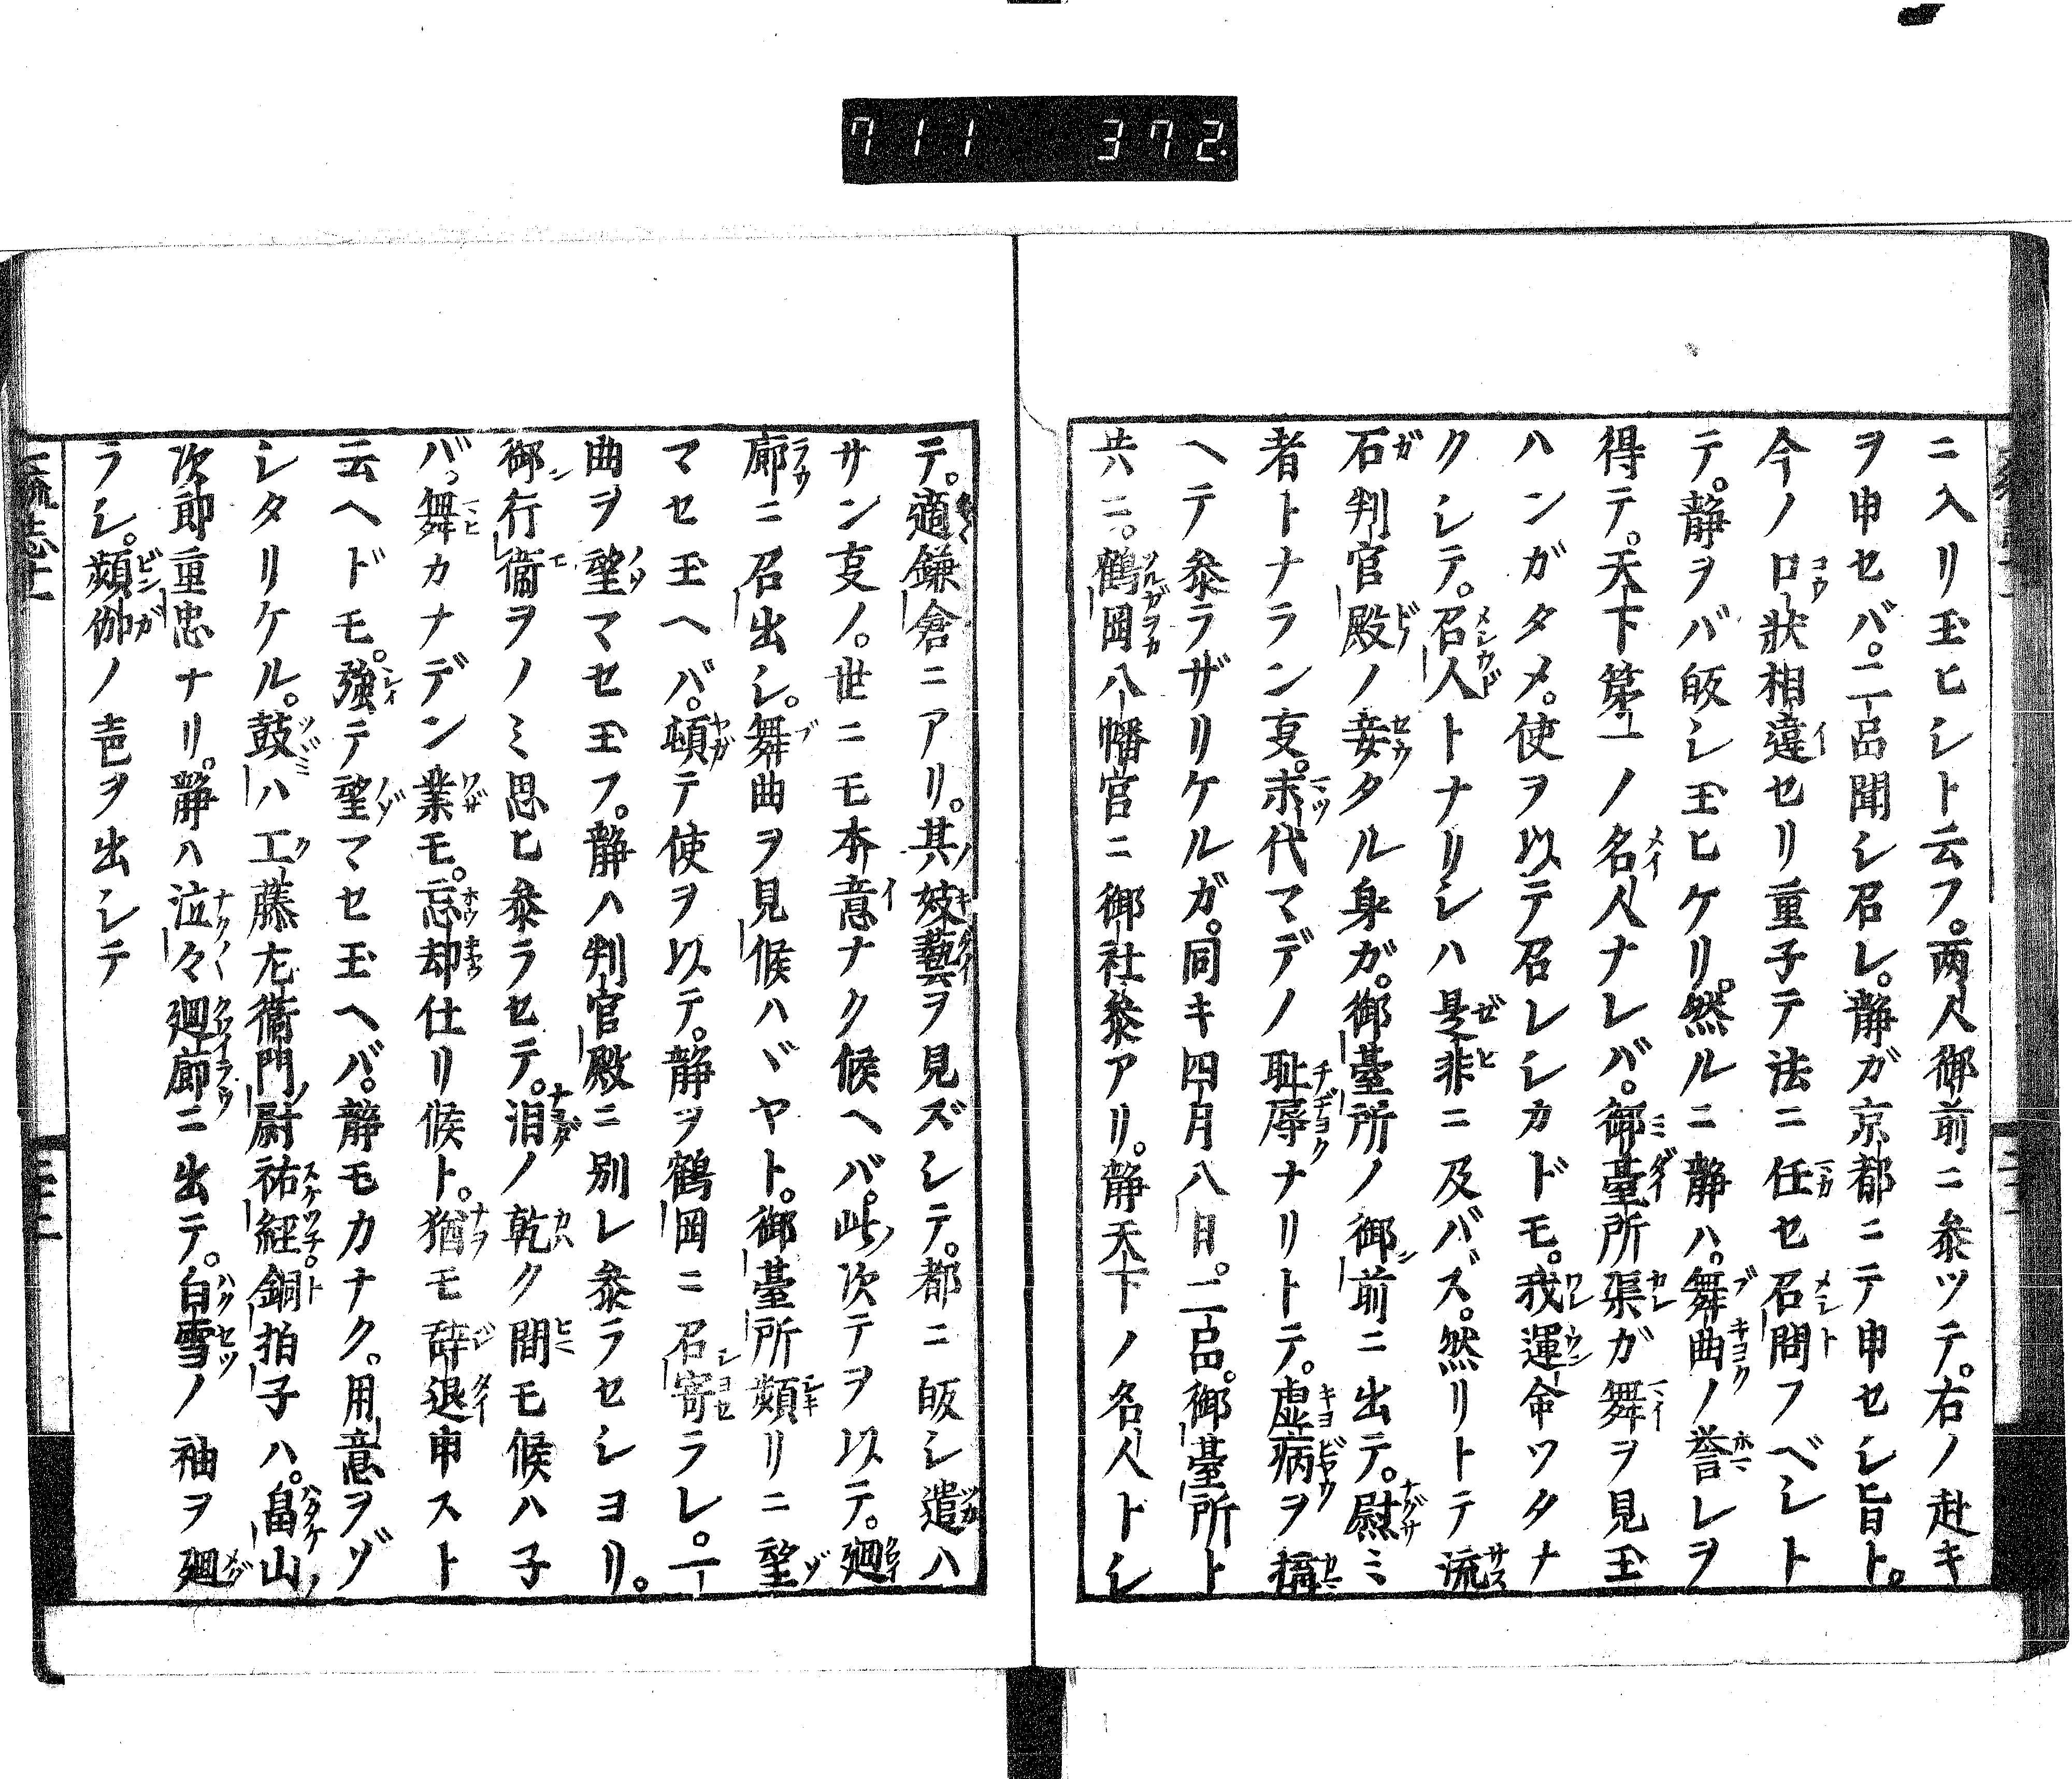 711 372.
ニ入リ玉ヒシト云フ。两人御前ニ参ツテ。右ノ赴キ
ヲ申セバ。二品聞シ召レ。静ガ京都ニテ申セシ旨ト。
今ノ口状相違セリ重子テ法ニ任セ召問フベシト
テ。静ヲバ皈シ玉ヒケリ。然ルニ静ハ。舞曲ノ誉レヲ
得テ。天下第一ノ名人ナレバ。御臺所渠ガ舞ヲ見玉
ハンガタメ。使ヲ以テ召レシカドモ。我運命ツタナ
クシテ。召人トナリシハ是非ニ及バズ。然リトテ流
石判官殿ノ妾タル身ガ。御臺所ノ御前ニ出テ。慰ミ
者トナラン叓。末代マデノ耻辱ナリトテ。虚病ヲ搆
ヘテ参ラザリケルガ。同キ四月八日。二品。御臺所ト
共ニ。鶴岡八幡宮ニ御社参アリ。静天下ノ名人トシ
テ。適鎌倉ニアリ。其妓藝ヲ見ズシテ。都ニ皈シ遣ハ
サン叓ノ。世ニモ本意ナク候ヘバ。此次テヲ以テ。廻
廊ニ召出シ。舞曲ヲ見候ハヾヤト。御臺所頻リニ望
マセ玉ヘバ。頓テ使ヲ以テ。静ヲ鶴岡ニ召寄ラレ。一
曲ヲ望マセ玉フ。静ハ判官殿ニ別レ参ラセショリ。
御行衞ヲノミ思ヒ参ラセテ。泪ノ乾ク間モ候ハ子
バ。舞カナデン業モ。忘却仕リ候ト。猶モ辞退申スト
云ヘドモ。強テ望マセ玉ヘバ。静モカナク。用意ヲゾ
シタリケル。鼓ハ工藤左衞門尉祐経銅拍子ハ。畠山
次郎重忠ナリ。静ハ泣々廻廊ニ出テ。白雪ノ袖ヲ廻
ラシ。頻伽ノ声ヲ出シテ